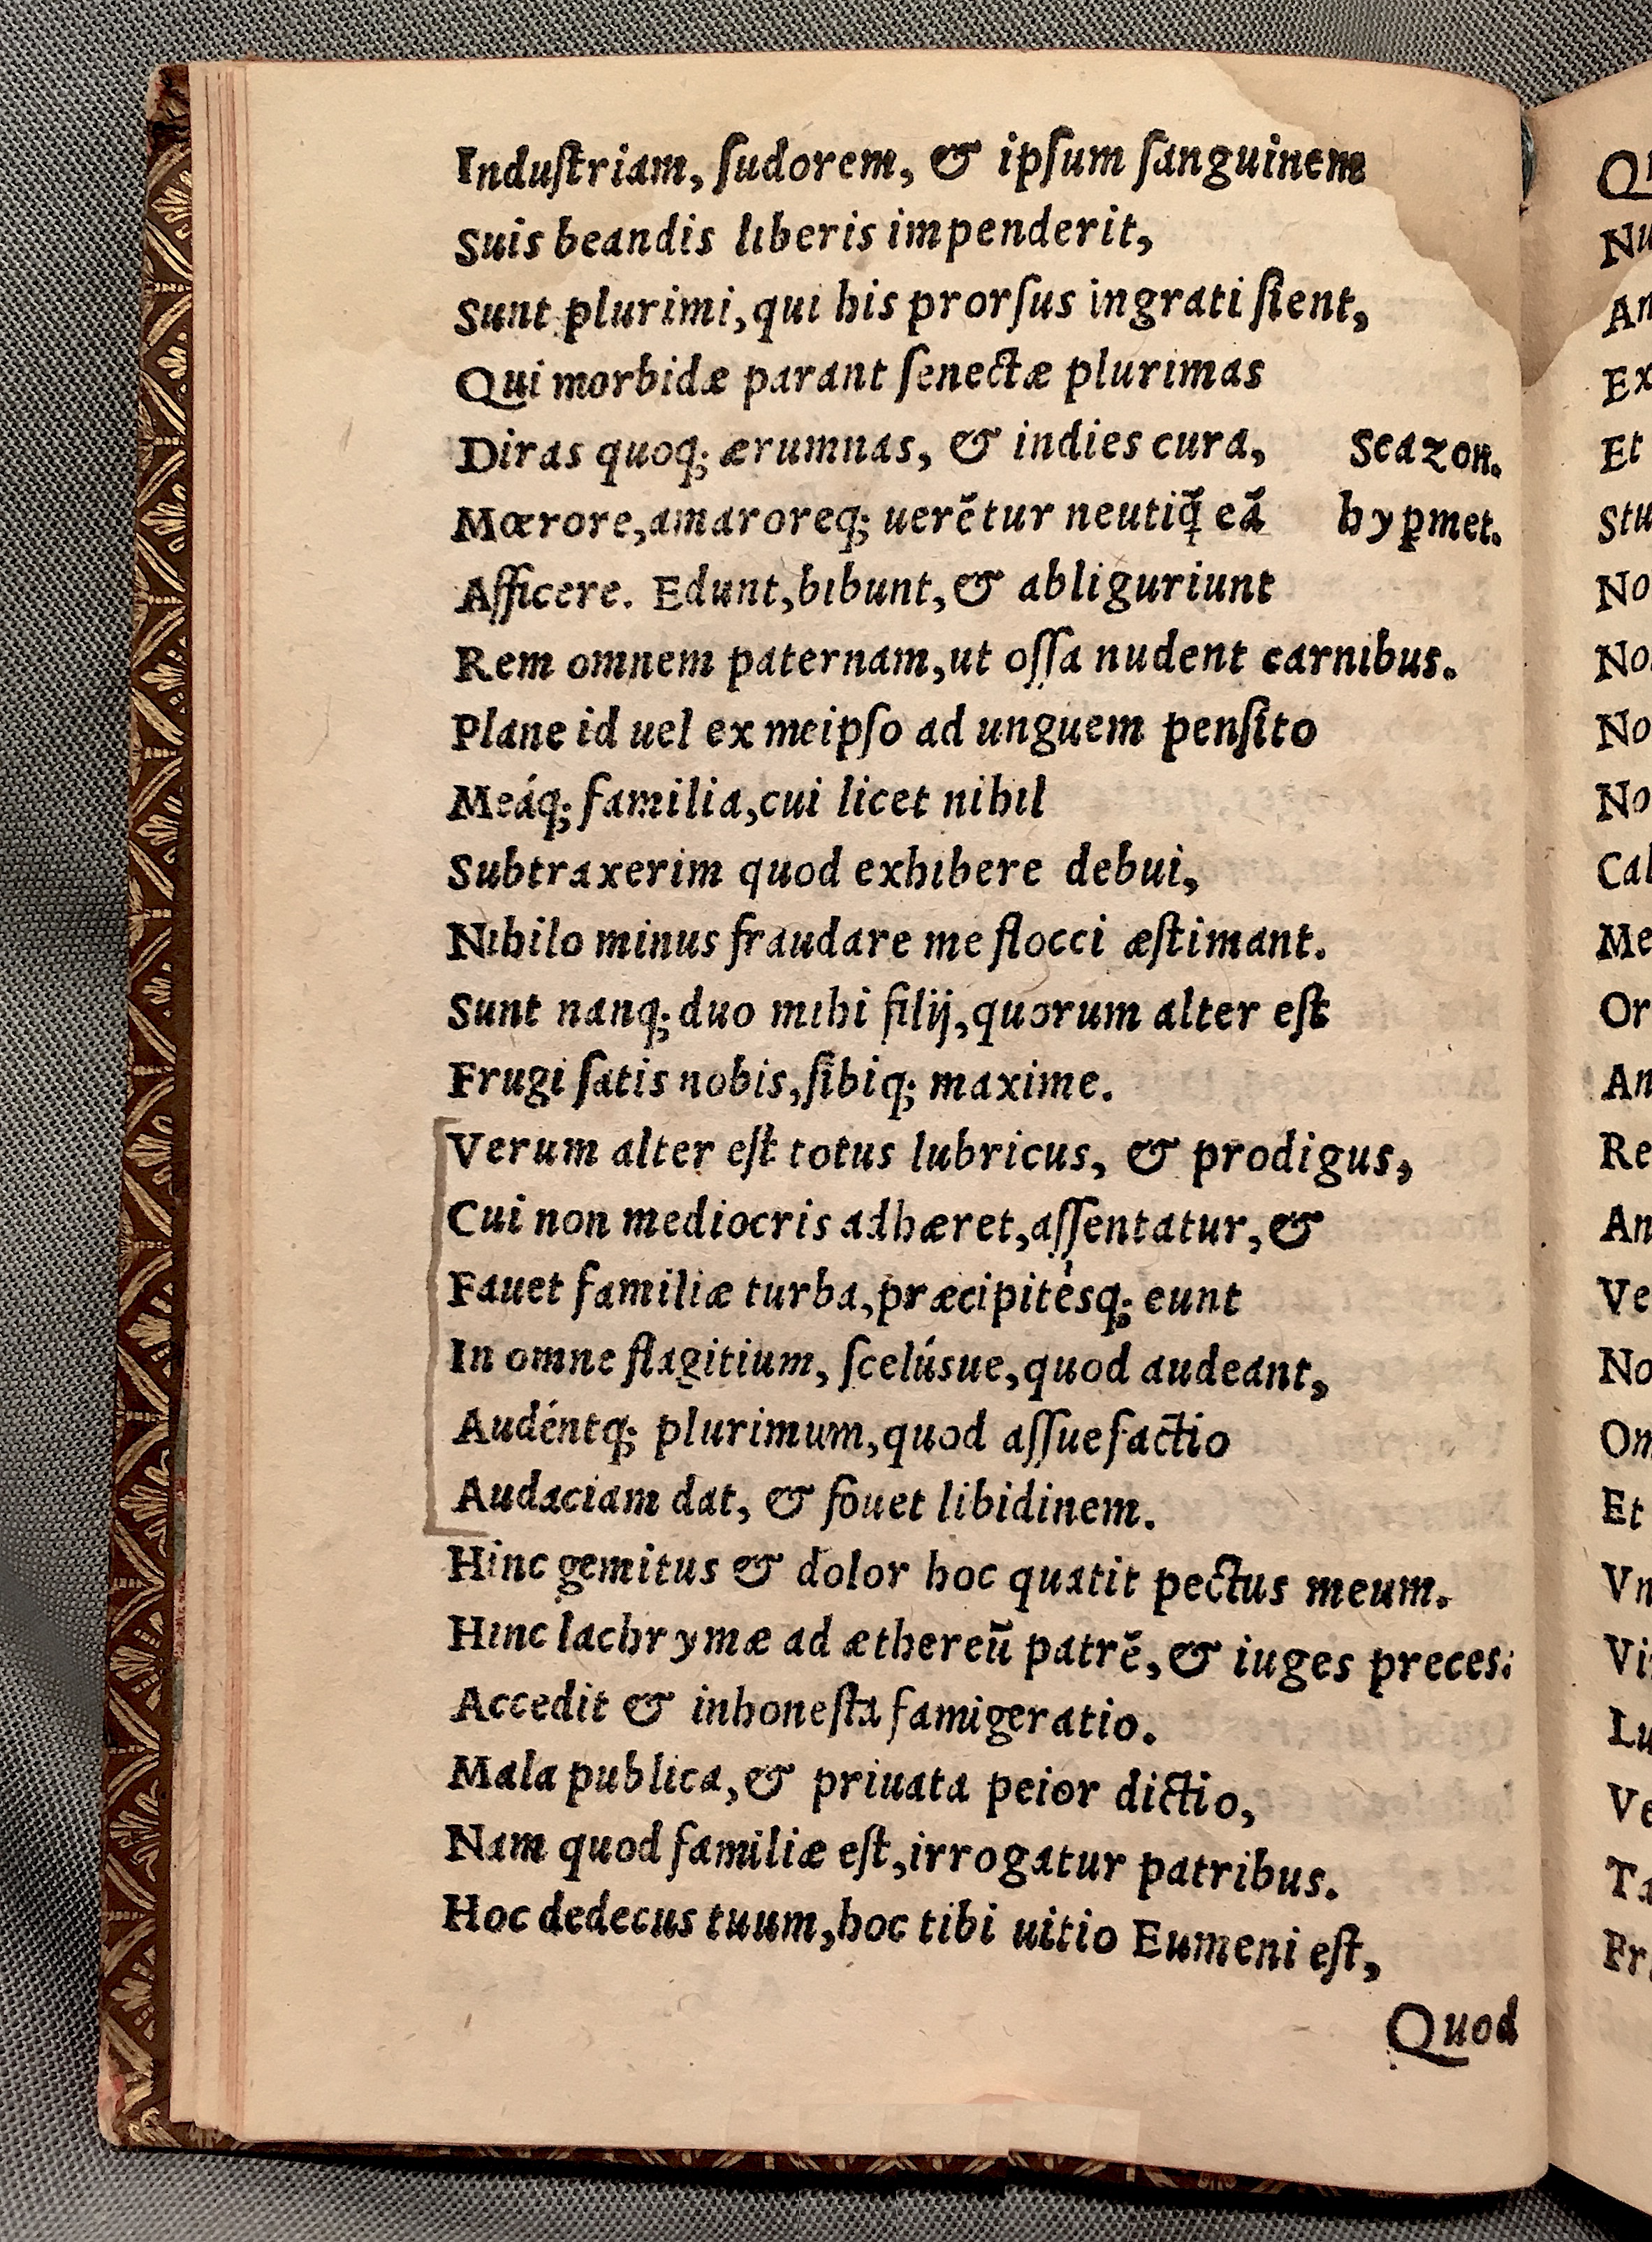 Induſtriam, ſudorem, & ipſum ſanguinem
Suis beandis liberis impenderit,
Sunt plurimi, qui his prorſus ingrati ſient,
Qui morbidæ parant ſenectæ plurimas
Diras quoq; ærumnas, & indies cura, Scazon.
Mœrore, amaroreq; uerẽtur neutiq̃ eã hyꝑmet.
Afficere. Edunt, bibunt, & abliguriunt
Rem omnem paternam, ut oſſa nudent carnibus.
Plane id uel ex meipſo ad unguem penſito
Meáq; familia, cui licet nihil
Subtraxerim quod exhibere debui,
Nihilo minus fraudare me flocci æſtimant.
Sunt nanq; duo mihi filij, quorum alter eſt
Frugi ſatis nobis, ſibiq; maxime.
Verum alter eſt totus lubricus, & prodigus,
Cui non mediocris adhæret, aſſentatur, &
Fauet familiæ turba, præcipitésq; eunt
In omne flagitium, ſcelúsue, quod audeant,
Audéntq; plurimum, quod aſſuefactio
Audaciam dat, & fouet libidinem.
Hinc gemitus & dolor hoc quatit pectus meum.
Hinc lachrymæ ad æthereũ patrẽ, & iuges preces:
Accedit & inhoneſta famigeratio.
Mala publica, & priuata peior dictio,
Nam quod familiæ eſt, irrogatur patribus.
Hoc dedecus tuum, hoc tibi uitio Eumeni eſt,
Quod
Nu
Ex
Et
Stu
No
No
No
No
Cal
Me
Or
An
Re
An
Ve
No
Om
Et
Vn
Lu
Ve